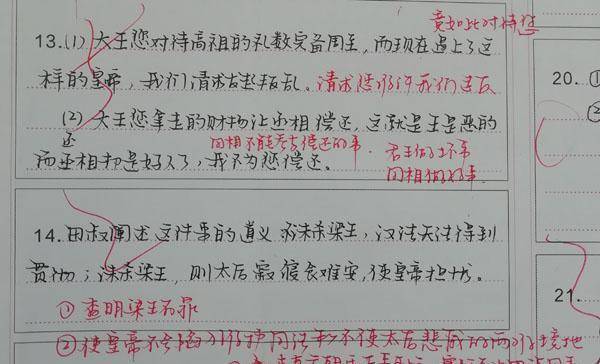 竟如此对待您
13.(1) 大王您对待高祖的礼数完备周至，而现在遇上了这
样的皇帝，我们请求发起叛乱。请求您允许我们造反
20. ①
(2) 大王您拿走的财物让丞相偿还，这就是王是恶的
还
而丞相却是好人了，我不为您偿还。
因相不能参与偿还的事
君王做坏事
国相做好事
14. 田叔阐述这件事的道义 求诛杀梁王，汉法无法得到
贯彻；诛杀梁王，则太后寝食难安，使皇帝担忧。
21.
① 查明梁王有罪
②使皇帝不会陷入